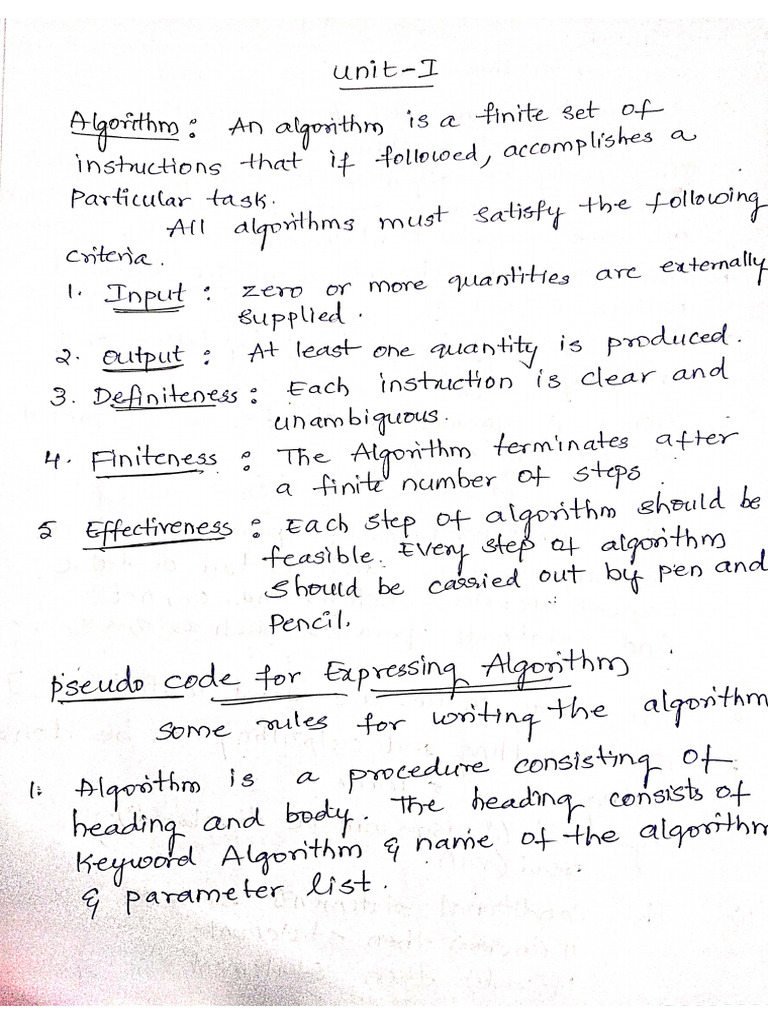 Unit-I
Algorithm: An algorithm is a finite set of
instructions that if followed, accomplishes a
Particular task.
All algorithms must satisfy the following
criteria.
1. Input : Zero or more quantities are externally
supplied.
2. Output : At least one quantity is produced.
3. Definiteness : Each instruction is clear and
unambiguous.
4. Finiteness : The Algorithm terminates after
a finite number of steps.
5 Effectiveness : Each step of algorithm should be
feasible. Every step of algorithm
should be carried out by pen and
pencil.
Pseudo code for Expressing Algorithm
Some rules for writing the algorithm
1: Algorithm is a procedure consisting of
heading and body. The heading consists of
Keyword Algorithm & name of the algorithm
& parameter list.